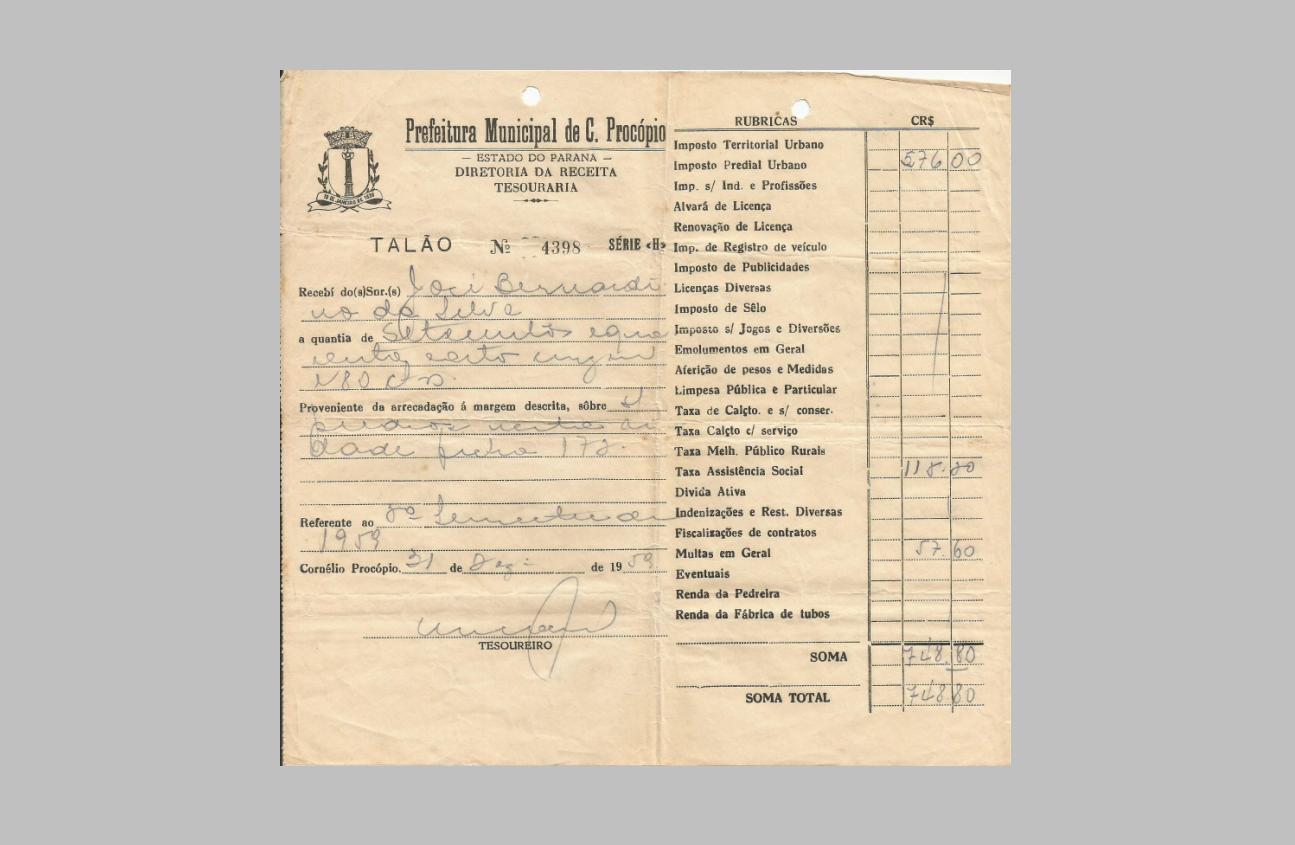 Prefeitura Municipal de C. Procópio
— ESTADO DO PARANA —
DIRETORIA DA RECEITA
TESOURARIA
18 DE JANEIRO DE 1938
TALÃO Nº 4398 SÉRIE «H»
Recebí do(s)Snr.(s) José Bernardi
no da Silva
a quantia de Setecentos e qua
renta e oito
N80
Proveniente da arrecadação á margem descrita, sôbre
predios nesta ci
dade ficha 172.
Referente ao 2º Semestre de
1959
Cornélio Procópio. 31 de Dez: de 1959
TESOUREIRO
RUBRICAS CR$
Imposto Territorial Urbano
Imposto Predial Urbano 576,00
Imp. s/ Ind. e Profissões
Alvará de Licença
Renovação de Licença
Imp. de Registro de veículo
Imposto de Publicidades
Licenças Diversas
Imposto de Sêlo
Imposto s/ Jogos e Diversões
Emolumentos em Geral
Aferição de pesos e Medidas
Limpesa Pública e Particular
Taxa de Calçto. e s/ conser.
Taxa Calçto c/ serviço
Taxa Melh. Público Rurais
Taxa Assistência Social
Divida Ativa
Indenizações e Rest. Diversas
Fiscalizações de contratos
Multas em Geral 57.60
Eventuais
Renda da Pedreira
Renda da Fábrica de tubos
SOMA 748.80
SOMA TOTAL 748 80